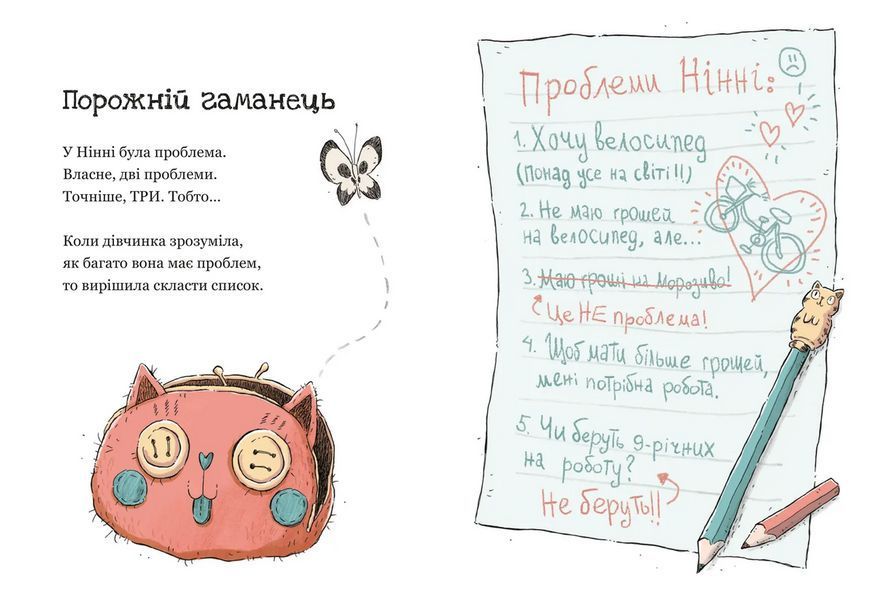 Порожній гаманець
У Нінні була проблема.
Власне, дві проблеми.
Точніше, ТРИ. Тобто...
Коли дівчинка зрозуміла,
як багато вона має проблем,
то вирішила скласти список.
Проблеми Нінні:
1. Хочу велосипед
(понад усе на світі!!)
2. Не маю грошей
на велосипед, але...
3. Маю гроші на морозиво!
Це НЕ проблема!
4. Щоб мати більше грошей,
мені потрібна робота.
5. Чи беруть 9-річних
на роботу?
Не беруть!!